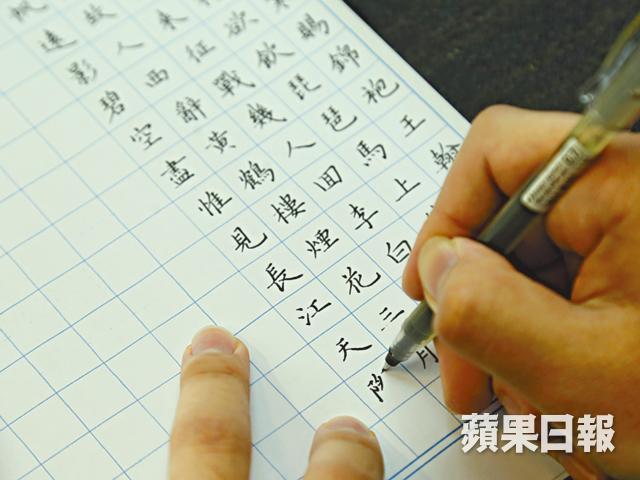 錦袍王翰
欲飲琵琶馬上
來征戰幾人回李白
故人西辭黃鶴樓煙花三月
帆遠影碧空盡惟見長江天
蘋果日報